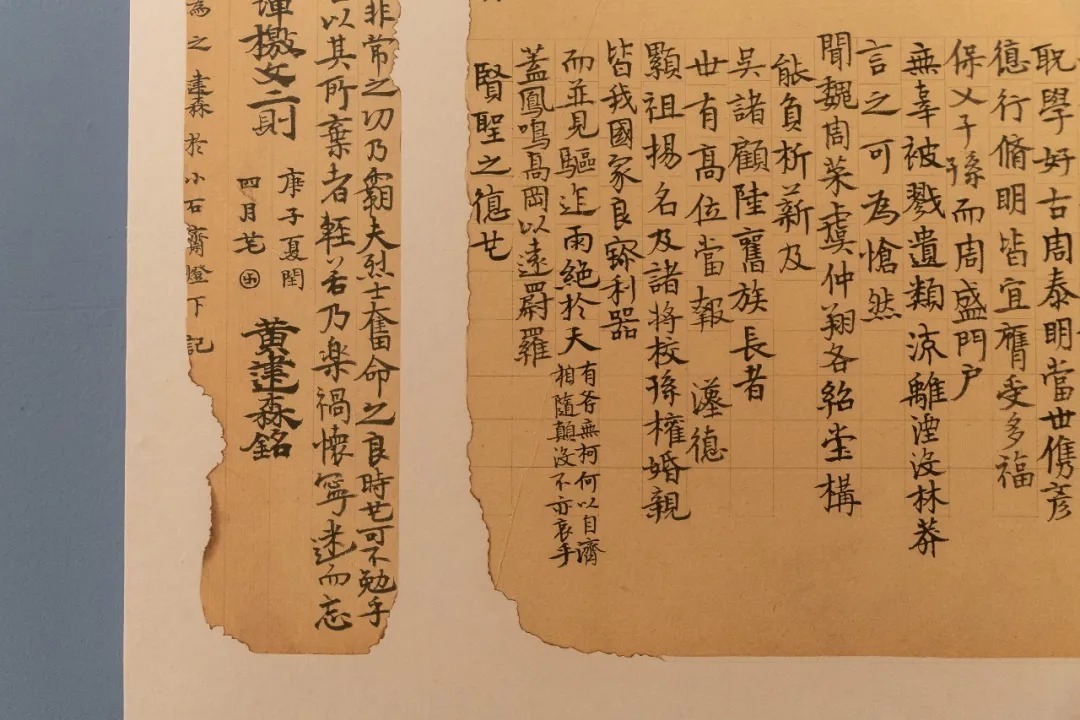 耽學好古周泰明當世儁彥
德行脩明皆宜膺受多福
保乂子孫而周盛門戶
無辜被戮遺類流離湮沒林莽
言之可為愴然
聞魏周榮虞仲翔各紹堂構
能負析薪及
吳諸顧陸舊族長者
世有高位當報漢德
顯祖揚名及諸將校孫權婚親
皆我國家良寶利器
而並見驅迮雨絕於天
有斧無柯何以自濟
相隨顛沒不亦哀乎
蓋鳳鳴高岡以遠罻羅
賢聖之德也
非常之功乃霸夫烈士奮命之良時也可不勉乎
以其所棄者輕若乃樂禍懷寧迷而忘
檄文二則
庚子夏閏
四月芒
黃建森銘
為之建森於小石齋燈下記